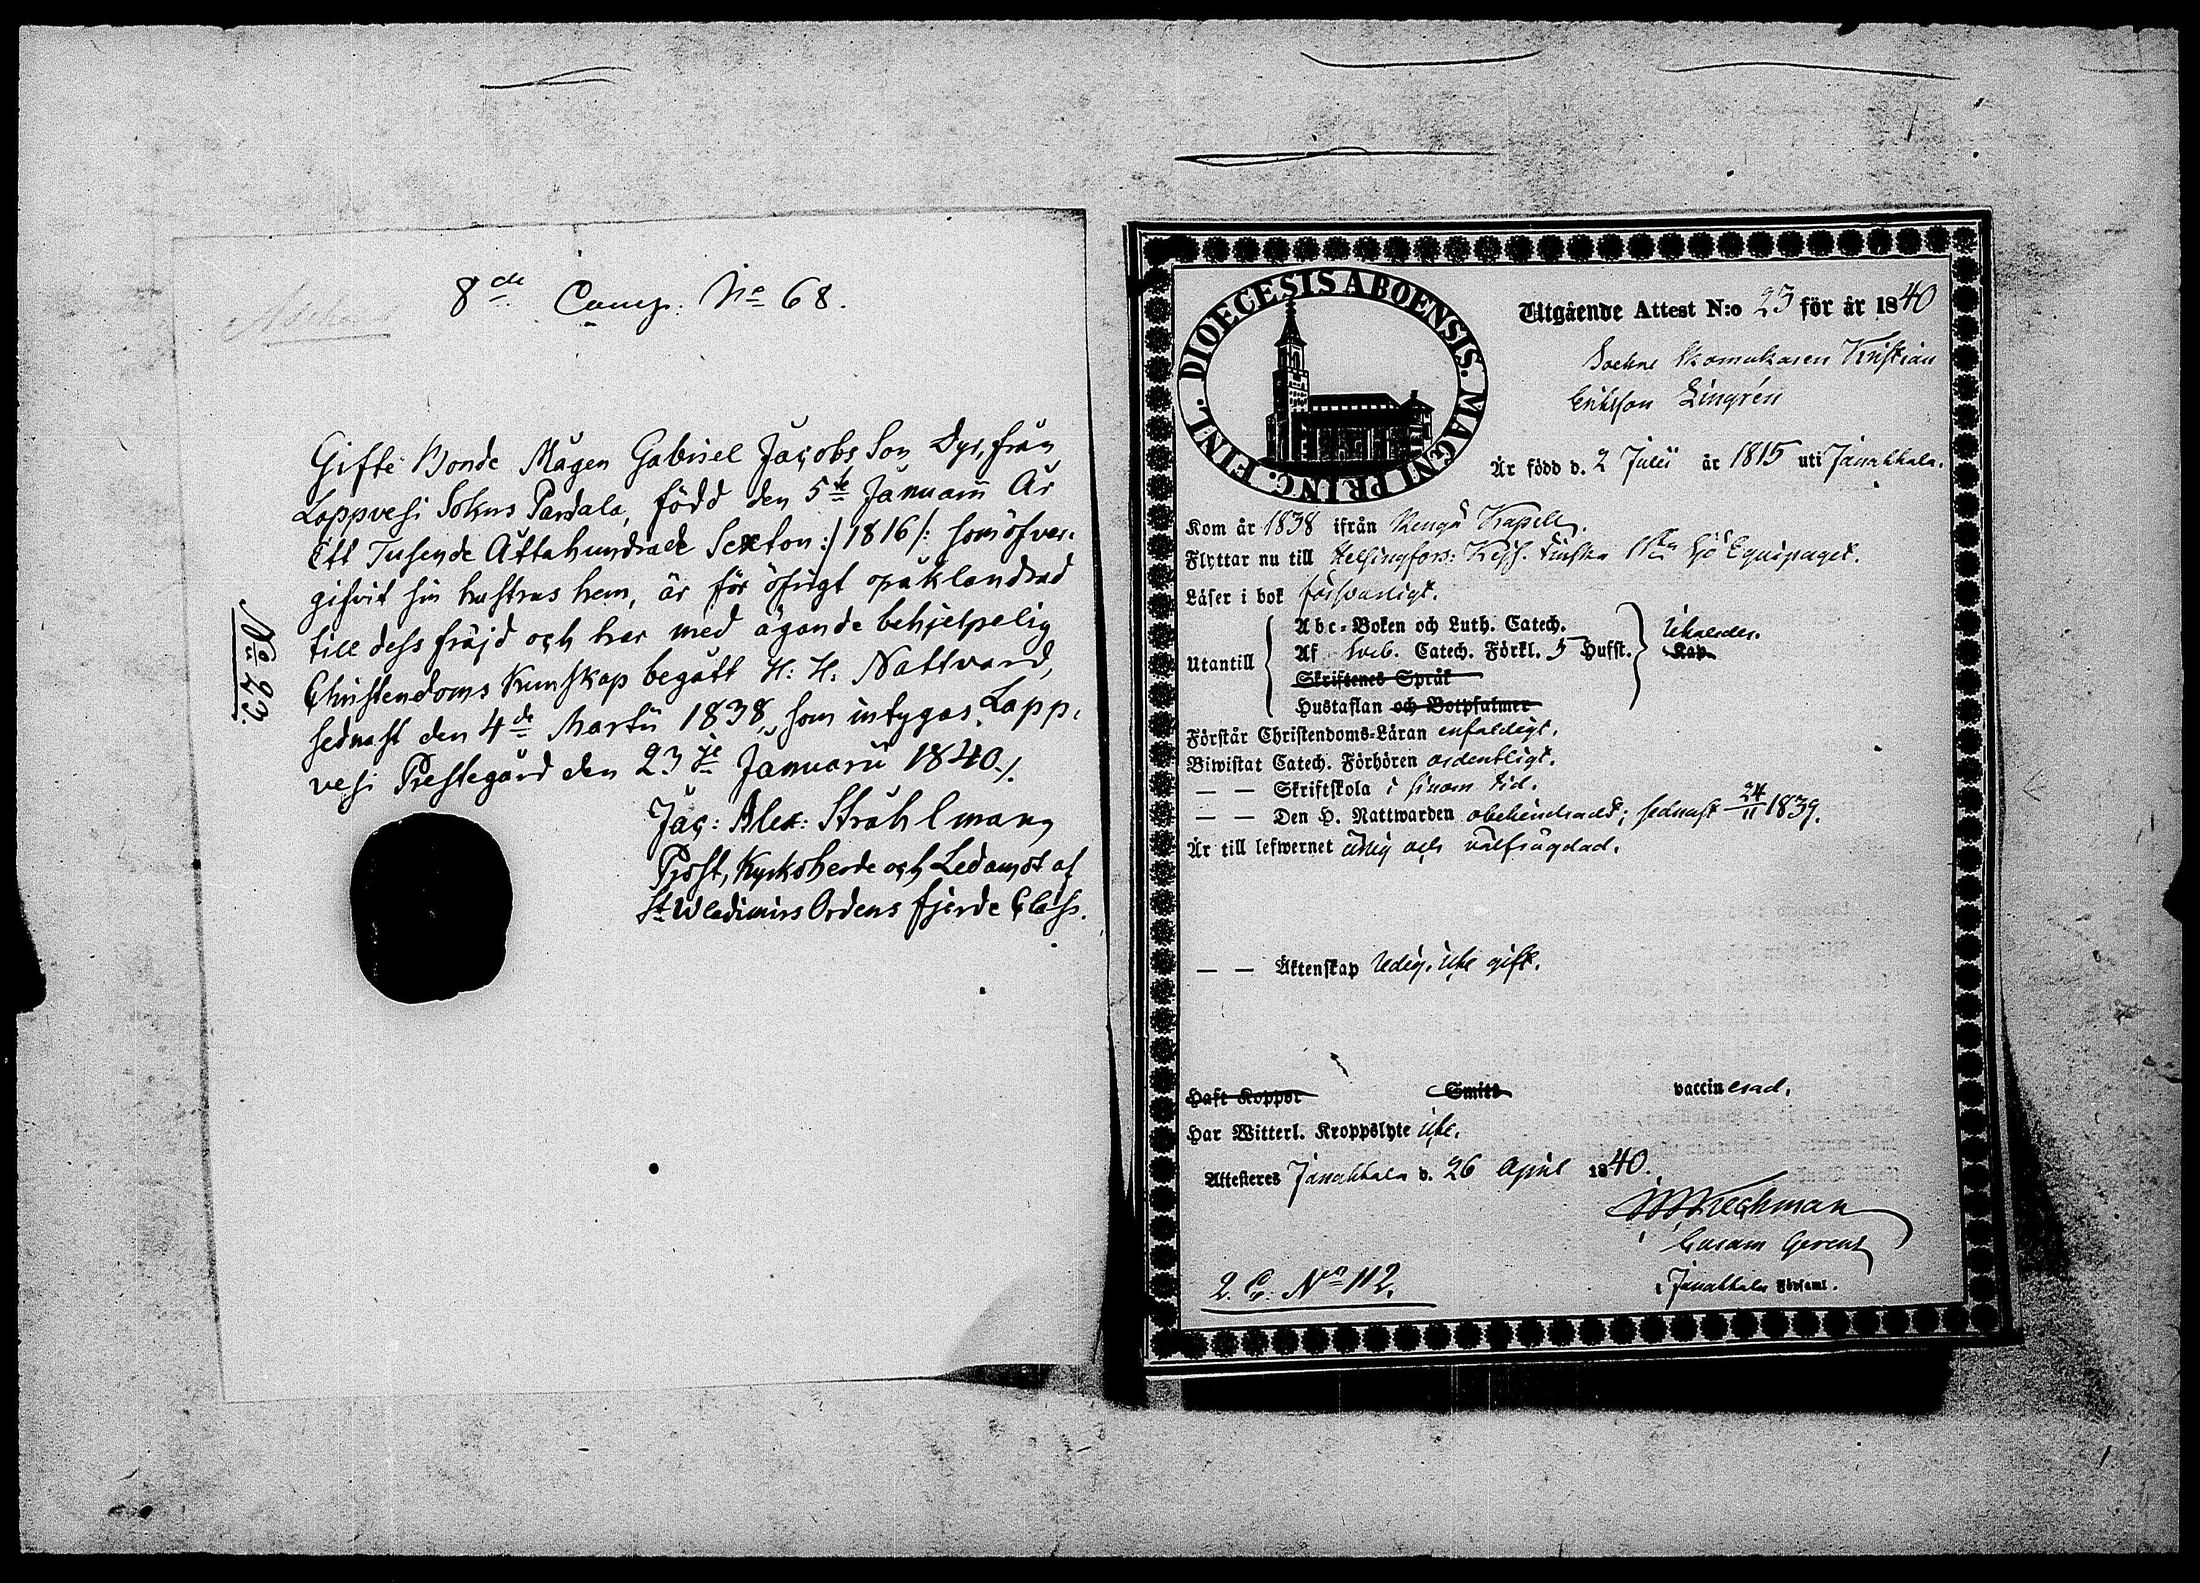 8de Comp: No 68.
No 23.
Gifte Bonde Mågen Gabriel Jacobs Son Dyr, från
Lappvesi Sokns Pardala, född den 5te Januarii År
Ett Tusende Åttahundrade Sexton :/ 1816 /: som öfver-
gifvit sin hustrus hem, är för öfrigt oäklandrad
till dess fräjd och har med ägande behjelpelig
Christendoms Kunskap begått H: H. Nattvard,
sednast den 4de Martii 1838, som intygas. Lapp-
vesi Prestegård den 23je Januarii 1840./.
Jac: Alex: Stråhlman,
Prost, Kyrkoherde och Ledamot af
St Wladimirs Ordens fjerde Class.
DIOECESIS ABOENSIS. MAGNI PRINC. FINL.
Utgående Attest N:o 23 för år 1840
Sockne Skomakaren Kristian
Eriksson Lingrén
Är född d. 2 Julii år 1815 uti Janakkala.
Kom år 1838 ifrån Rengo Kapell.
Flyttar nu till Helsingfors: Kejs. Finska 1sta Sjö Equipaget.
Läser i bok försvarligt.
Utantill
Abc-Boken och Luth. Catech.
Af Sveb. Catech. Förkl. 5 Hufst.
Skriftenes Språk
Hustaflan och Botpsalmer
Kap.
Förstår Christendoms-Läran enfaldigt.
Biwistat Catech. Förhören ordentligt.
— — Skriftskola i sinom tid.
— — Den H. Nattwarden obehindradt; sednast 24/11 1839.
Är till lefwernet ärlig och välfrägdad.
— — Äktenskap ledig, icke gift.
Haft Koppor Smitt vaccinerad.
Har Witterl. Kroppslyte icke.
Attesteras Janakkala d. 26 April 1840.
Curam Gerens
i Janakkala Församl.
2. C. No 112.